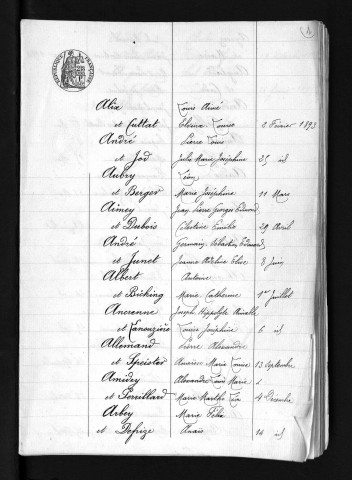 1
RÉPUBLIQUE FRANÇAISE
Alix Louis Aimé
et Cuttat Elvina Louise 2 Février 1893
André Pierre Louis
et Jod Julie Marie Joséphine 25 id
Aubry Léon
et Berger Marie Joséphine 11 Mars
Aimey Jean Pierre Georges Edmond
et Dubois Célestine Emilie 29 Avril
André Germain Sébastien Edmond
et Junet Jeanne Adeline Elise 8 Juin
Albert Antoine
et Biching Marie Catherine 1er Juillet
Ancrenne Joseph Hippolyte
et Louise Joséphine 6 id
Allemand Pierre Alexandre
et Speister Marie Louise 13 Septembre
Amidey Alexandre Marie
et Perrillard Marie 4 Décembre
Arbey Marie Félix
et Defrize Anaïs 14 id